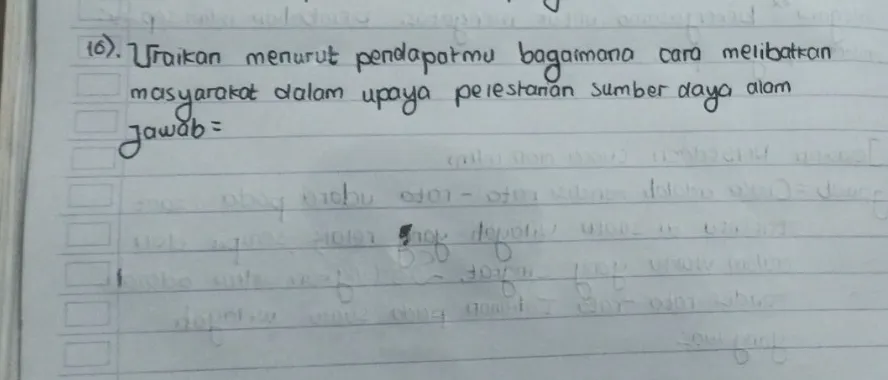 16). Uraikan menurut pendapatmu bagaimana cara melibatkan
masyarakat dalam upaya pelestarian sumber daya alam
Jawab =